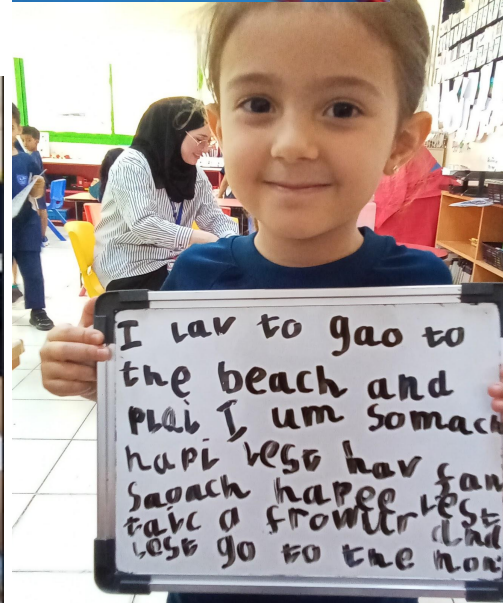 I lav to gao to
the beach and
plai I um somach
hapi lest hav fan
sagach hapee lest
taic a frowltr and
lest go to the hom